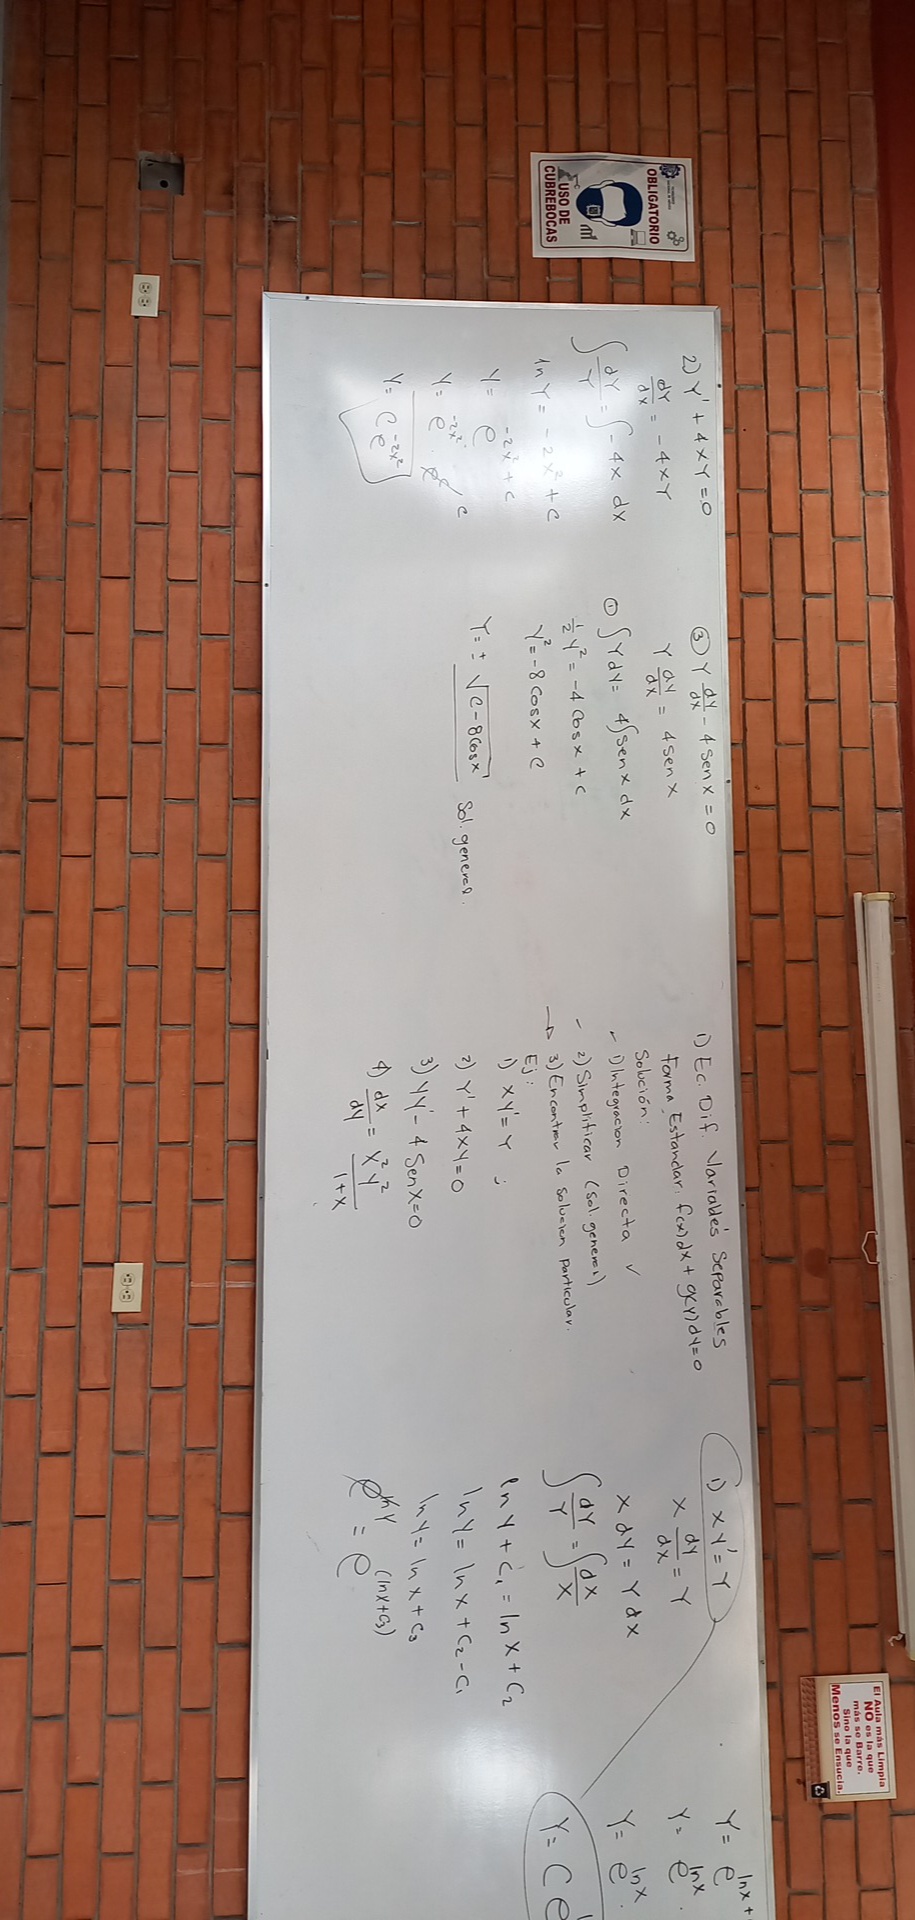 OBLIGATORIO
USO DE
CUBREBOCAS
2) Y' + 4xY = 0
dY/dx = -4xY
∫ dY/Y = ∫ -4x dx
ln Y = -2x² + c
Y = e^(-2x² + c)
Y = e^(-2x²) · e^c c
Y = Ce^(-2x²)
③ Y dY/dx - 4 Sen x = 0
Y dY/dx = 4 Sen x
① ∫ Y dY = 4∫ Sen x dx
1/2 Y² = -4 Cos x + c
Y² = -8 Cos x + c
Y = ± √(C - 8 Cos x) Sol. general.
1) Ec. Dif. Variables Separables
Forma Estandar: f(x)dx + g(Y)dY = 0
Solución:
1) Integracion Directa ✓
2) Simplificar (Sol. general)
→ 3) Encontrar la solucion Particular.
Ej:
1) XY' = Y ;
2) Y' + 4xY = 0
3) YY' - 4 Sen X = 0
4) dx/dY = X²Y²/(1+X)
1) XY' = Y
X dY/dx = Y
X dY = Y dX
∫ dY/Y = ∫ dX/X
ln Y + C₁ = ln X + C₂
ln Y = ln X + C₂ - C₁
ln Y = ln X + C₃
e^(ln Y) = e^(ln X + C₃)
Y = e^(ln X +
Y = e^(ln X) ·
Y = e^(ln X) ·
Y = C e
El Aula más Limpia
NO es la que
más se Barre.
Sino la que
Menos se Ensucia.